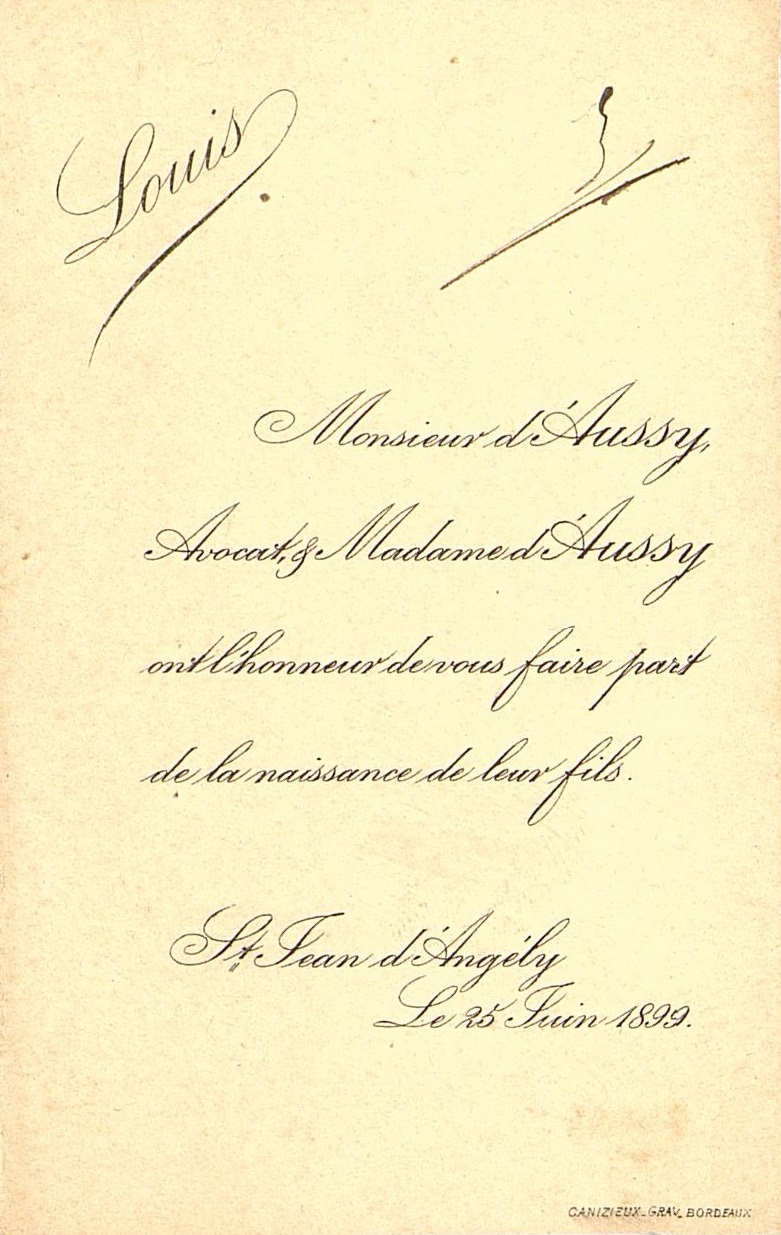 Louis
Monsieur d'Aussy,
Avocat, & Madame d'Aussy
ont l'honneur de vous faire part
de la naissance de leur fils.
St Jean d'Angély
Le 25 Juin 1899.
CANIZIEUX_GRAV_BORDEAUX